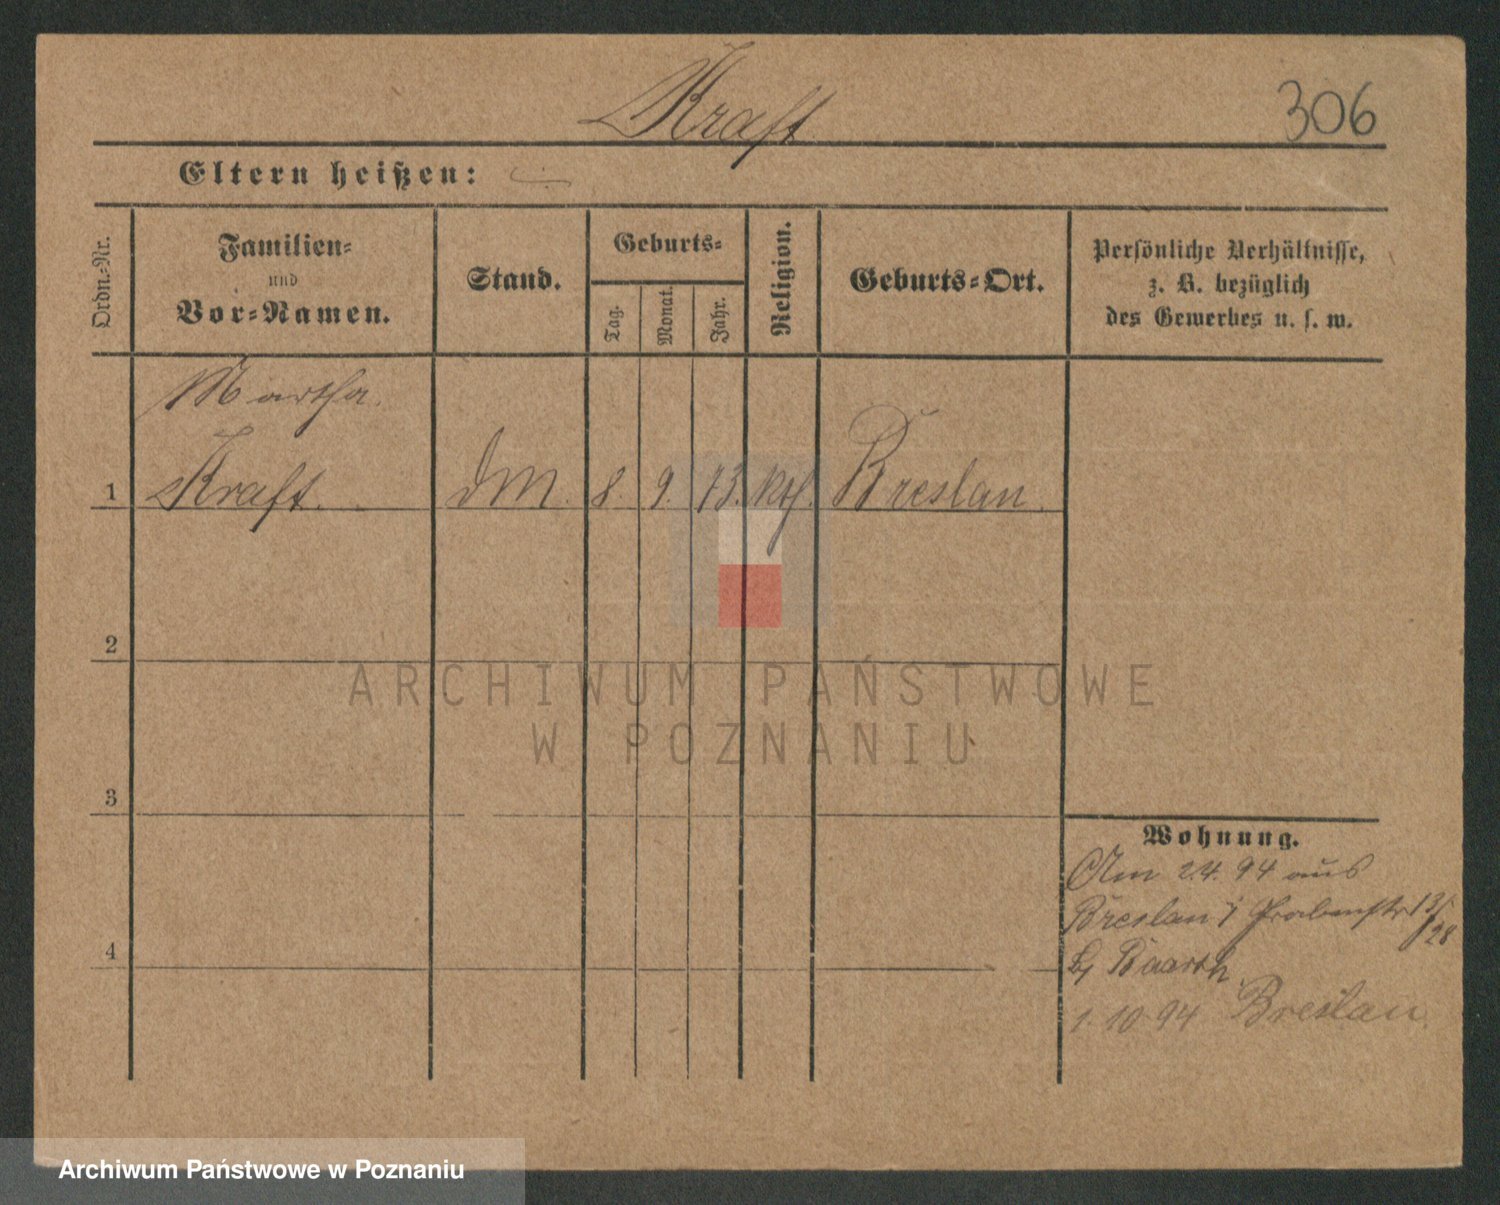 Kraft 306
Eltern heißen:
Ordn.-Nr.
Familien-
und
Vor-Namen.
Stand.
Geburts-
Tag.
Monat.
Jahr.
Religion.
Geburts-Ort.
Persönliche Verhältnisse,
z. B. bezüglich
des Gewerbes u. s. w.
Martha.
1 Kraft. DM. 8. 9. 73. kth. Breslau.
2
3
4
Wohnung.
Am 2.4.94 aus
Breslau 13/28
b/ Baarth
1.10.94 Breslau.
ARCHIWUM PAŃSTWOWE
W POZNANIU
Archiwum Państwowe w Poznaniu